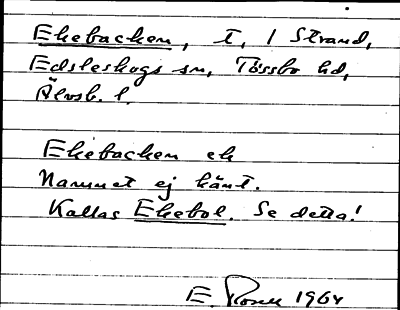 Ekebacken, t, 1 Strand,
Edsleskogs sn, Tössbo hd,
Älvsb. l.
Ekebacken ek
Namnet ej känt.
Kallas Ekebol. Se detta!
E. 1964